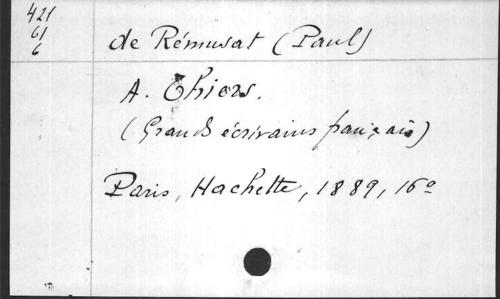 421
61
6
de Rémusat (Paul)
A. Thiers.
(Grands écrivains français)
Paris, Hachette, 1889, 16º